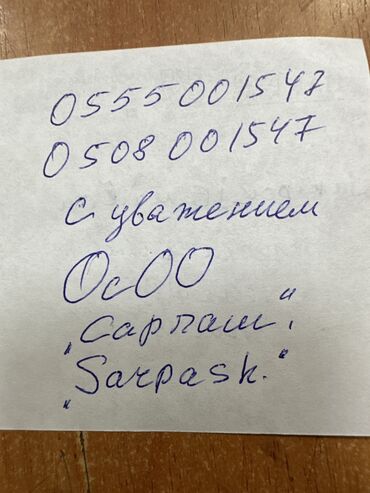 0555001547
0508001547
С уважением
ОсОО
„Сарпаш“.
„Sarpash.“